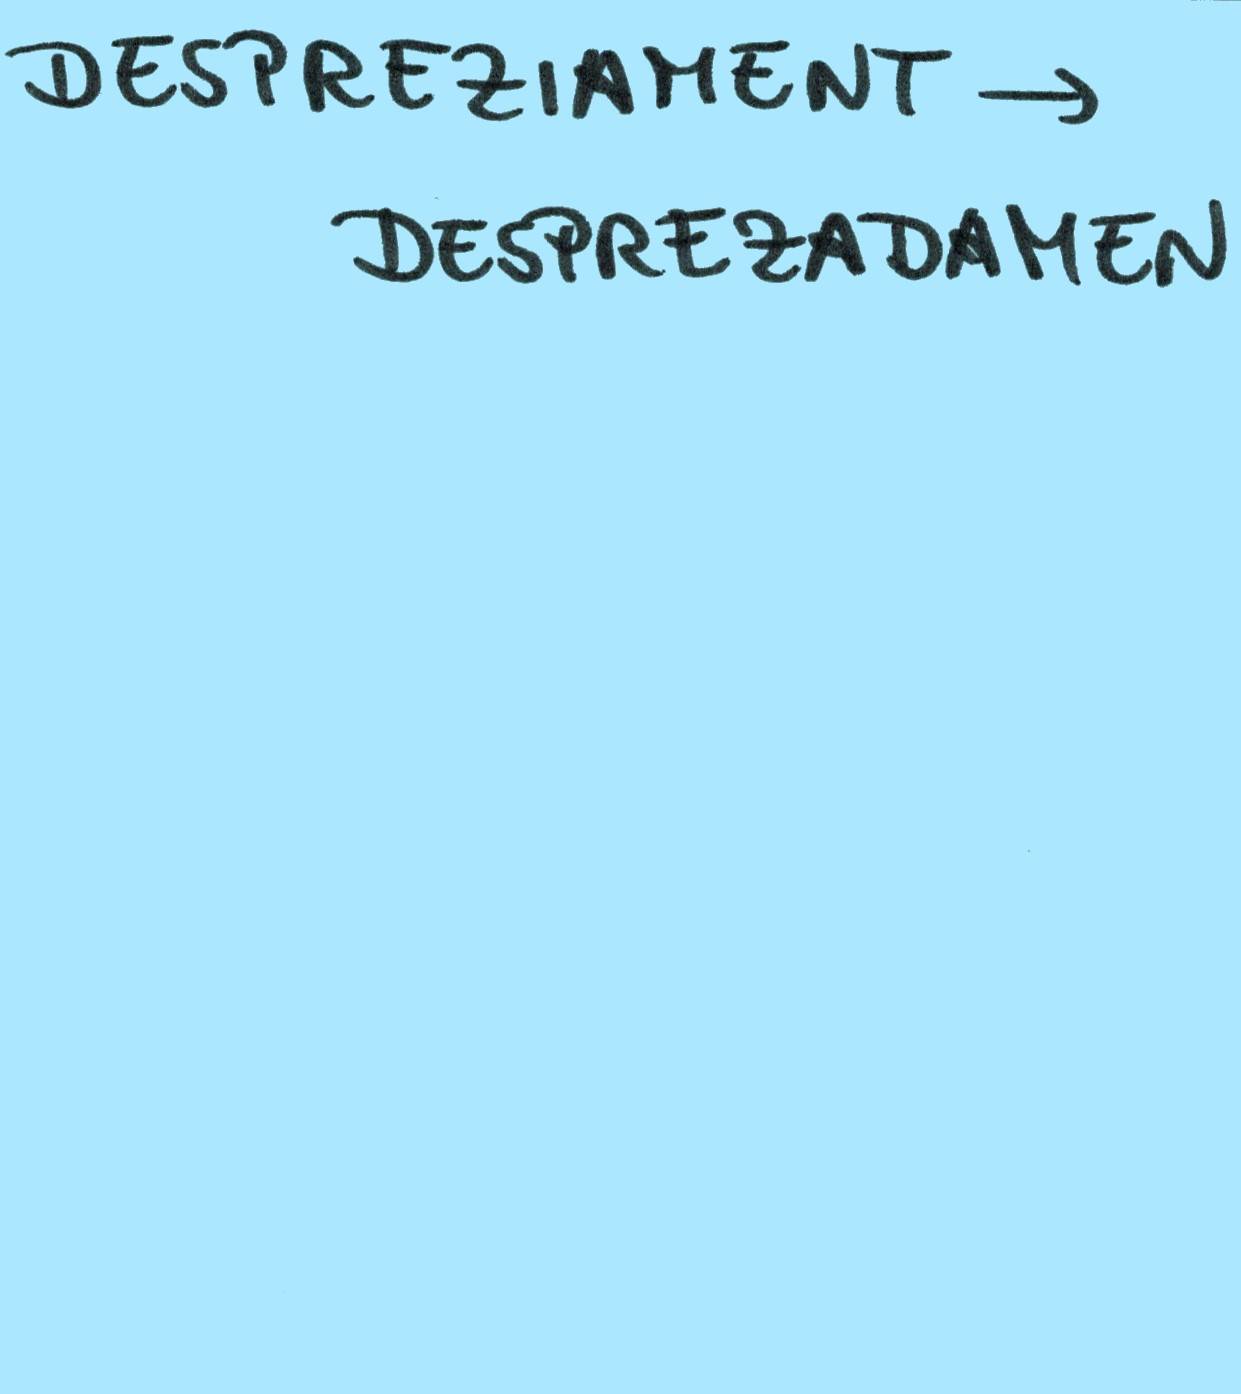 DESPREZIAMENT →
DESPREZADAMEN